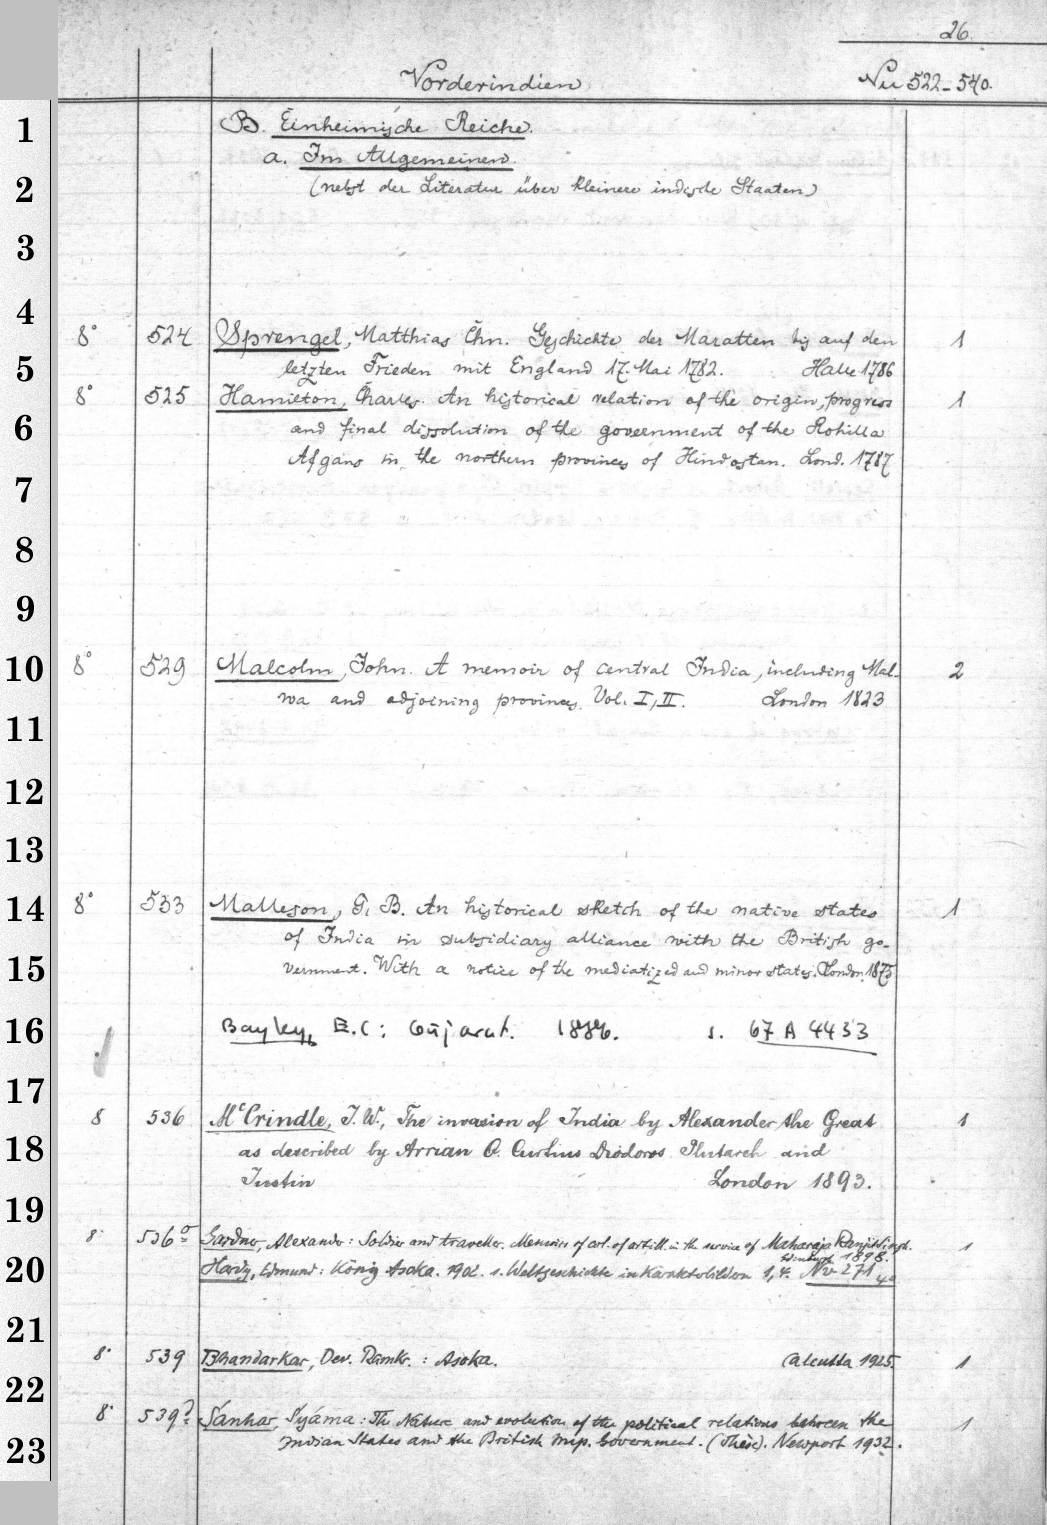 26.
Vorderindien Nu 522-540.
B. Einheimische Reiche.
a. Im Allgemeinen.
(nebst der Literatur über kleinere indische Staaten)
8° 524 Sprengel, Matthias Chn. Geschichte der Maratten bis auf den 1
letzten Frieden mit England 17. Mai 1782. Halle 1786
8° 525 Hamilton, Charles. An historical relation of the origin, progress 1
and final dissolution of the government of the Rohilla
Afgans in the northern provinces of Hindostan. Lond. 1787
8° 529 Malcolm, John. A memoir of central India, including Mal- 2
wa and adjoining provinces. Vol. I, II. London 1823
8° 533 Malleson, G. B. An historical sketch of the native states 1
of India in subsidiary alliance with the British go-
vernment. With a notice of the mediatized and minor states. London 1875
Bayley, E.C: Gujarat. 1886. s. 67 A 4453
8 536 McCrindle, J. W., The invasion of India by Alexander the Great 1
as described by Arrian Q. Curtius Diodoros Plutarch and
Justin London 1893.
8° 536 a Gardner, Alexander: Soldier and traveller. Memoirs of col. of artill. in the service of Maharaja Ranjit Singh. 1
Edinburgh 1898.
Hardy, Edmund: König Asoka. 1902. s. Weltgeschichte in Karakterbildern 1, 4. Nv 271 4°
8° 539 Bhandarkar, Dev. Ramkr. : Asoka. Calcutta 1925. 1
8° 539 Sánhar, Syáma: The Nature and evolution of the political relations between the 1
Indian States and the British Imp. Government. (Thèse). Newport 1932.
1
2
3
4
5
6
7
8
9
10
11
12
13
14
15
16
17
18
19
20
21
22
23